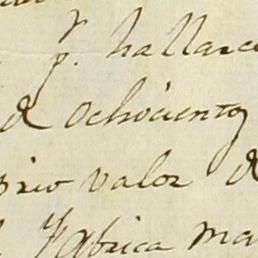 p.r hallarce
de ochocientos
prio valor de
Fabrica Ma